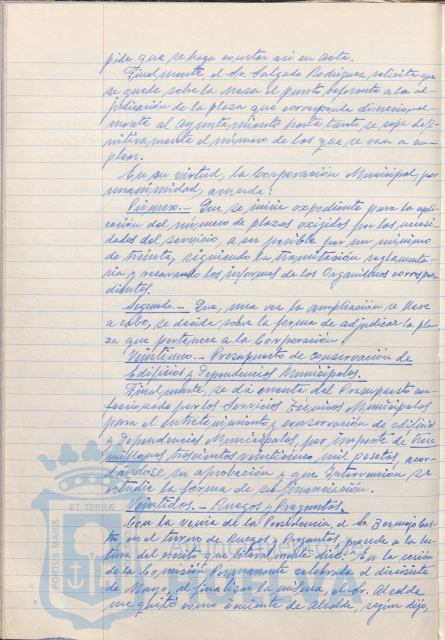 pide que se haga constar así en acta.
Finalmente, el Sr. Salgado Rodríguez, solicita que
se quede sobre la mesa el punto referente a la ad-
judicación de la plaza que corresponde
al Ayuntamiento hasta tanto, se sepa defi-
nitivamente el número de las que se van a am-
pliar.
En su virtud, la Corporación Municipal, por
unanimidad, acuerda:
Primero.- Que se inicie expediente para la apli-
cación del número de plazas exigidas por las necesi-
dades del servicio, a ser posible por un mínimo
de treinta, siguiendo la tramitación reglamenta-
ria y recavando los informes de los Organismos correspon-
dientes.
Segundo.- Que, una vez la ampliación, se lleve
a cabo, se decida sobre la forma de adjudicar la pla-
za que pertenece a la Corporación.
Veintiuno.- Presupuesto de conservación de
Edificios y Dependencias Municipales.
Finalmente, se dá cuenta del Presupuesto con-
feccionado por los Servicios Técnicos Municipales
para el entretenimiento y conservación de edificios
y Dependencias Municipales, por importe de
millones trescientas veinticinco mil pesetas, acor-
dándose su aprobación y que Intervención se
estudie la forma de su financiación.
Veintidos.- Ruegos y Preguntas.
Con la venia de la Presidencia, el Sr. Bermejo Cas-
tro en el turno de Ruegos y Preguntas, procede a la lec-
tura del escrito que literalmente dice: "En la sesión
de la Comisión Permanente celebrada el diecisiete
de Mayo, al finalizar la misma, el Sr. Alcalde
me quitó como Teniente de Alcalde, según dijo,
PORTUS MARIS
ET TERRAE